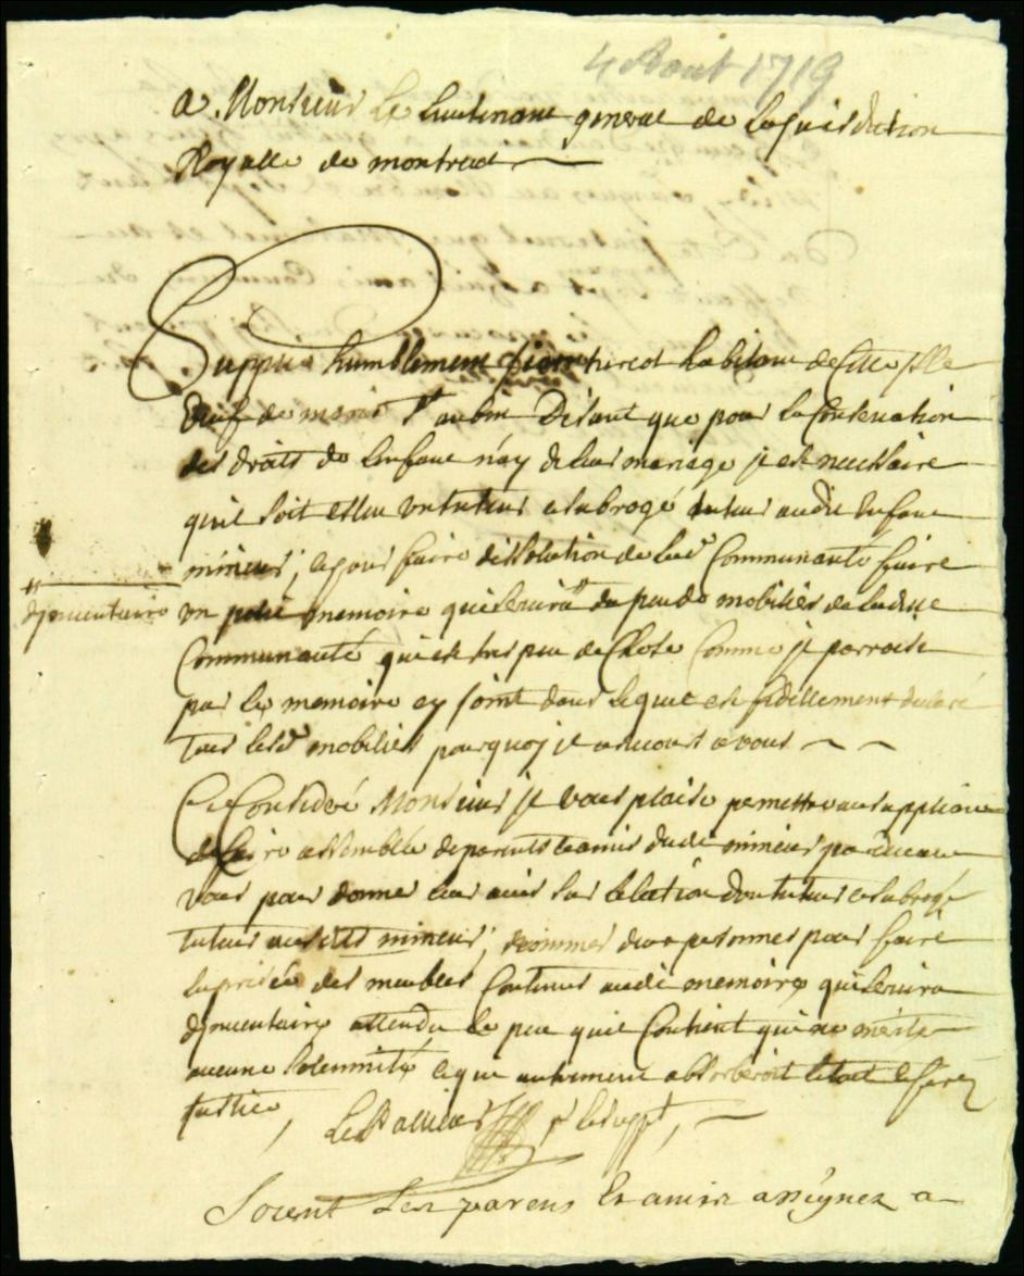 4 Aout 1719
A Monsieur Le Lieutenant general de la Jurisdiction
Royalle de montreal
Supplie humblement turcot habitant de Cette Isle
Veuf de marie St aubin Disant que pour la Conservation
des droits de lenfant néy de leur mariage il est necessaire
quil soit esleu un tuteur et subrogé tuteur audit Enfant
mineur, et pour faire dissolution de lade Communauté faire
un petit memoire qui servira du peu de mobilier de ladite
d'jnventaire
Communauté qui est tres peu de Chose Comme il parroist
par le memoire cy joint dans lequel est fidellement declaré
tous lesd mobiliers pourquoy il a recours a vous
Ce Consideré Monsieur il vous plaise permettre au suppliant
de faire assemblée de parents et amis dudit mineur pardevant
vous pour donner leur avis sur lelection dun tuteur et subrogé
tuteur mineur, nommer deux personnes pour faire
la prisée des meubles Contenus audit memoire qui servira
djnventaire attendu le peu quil Contient qui ne merite
aucune solemnité et que autrement absorberoit le tout et ferez
justice, Le Pallieur pr le suppt,
Soient Les parens Et amis assignez a